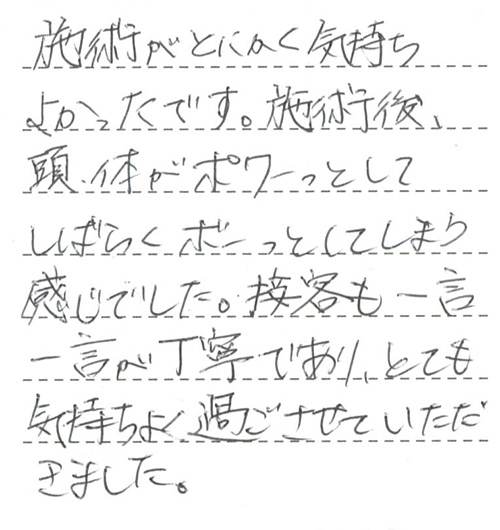 施術がとにかく気持ち
よかったです。施術後、
頭、体がポワーっとして
しばらくボーっとしてしまう
感じでした。接客も一言
一言が丁寧であり、とても
気持ちよく過ごさせていただ
きました。